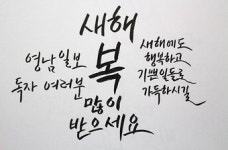 새해
복
많이
받으세요
영남일보
독자 여러분
새해에도
행복하고
기쁜 일들로
가득하시길